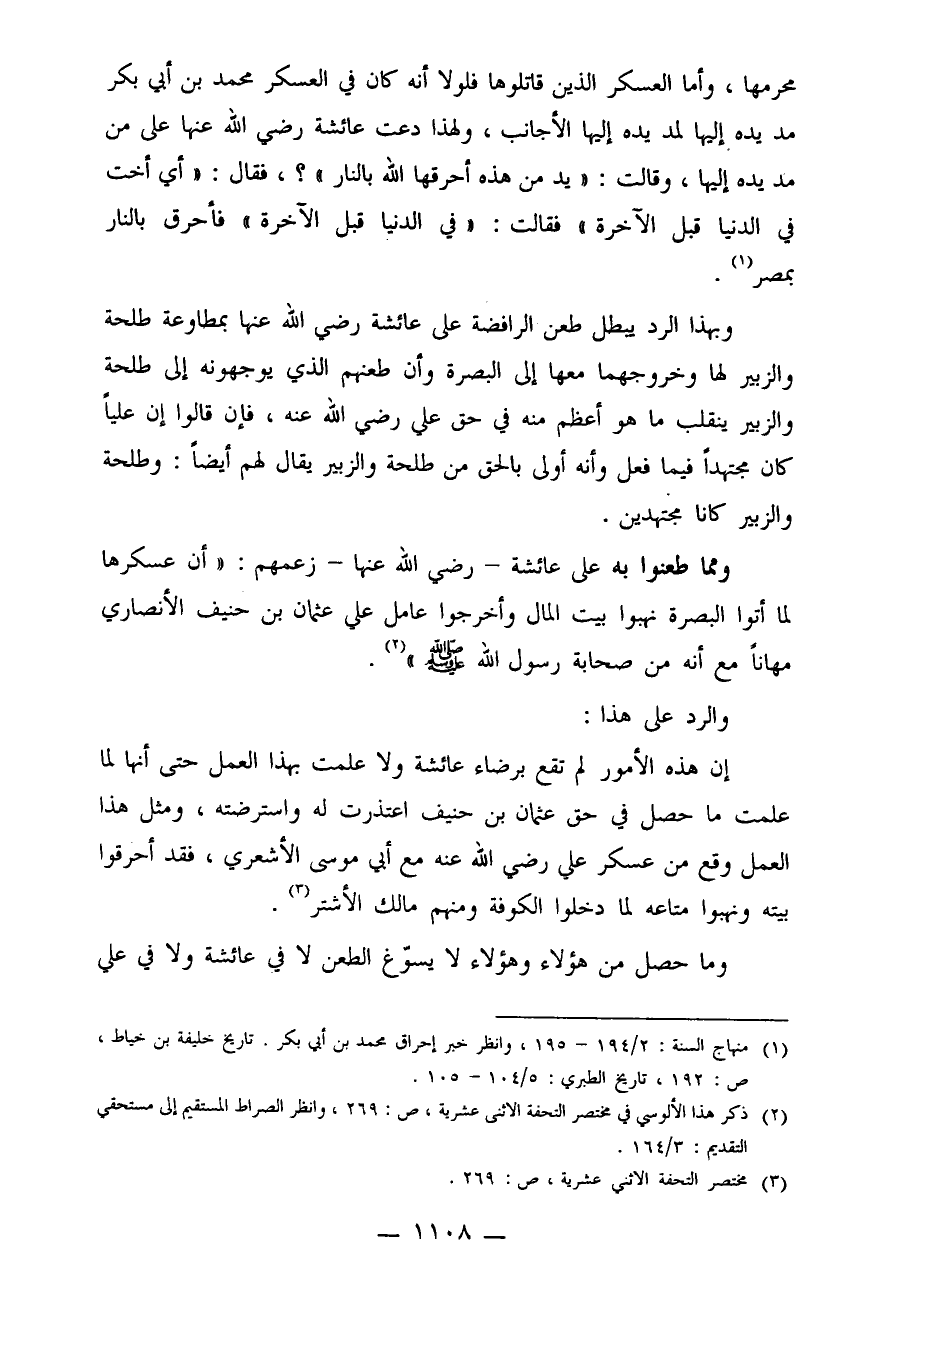 محرمها ، وأما العسكر الذين قاتلوها فلولا أنه كان في العسكر محمد بن أبي بكر
مد يده إليها لمد يده إليها الأجانب ، ولهذا دعت عائشة رضي الله عنها على من
مد يده إليها ، وقالت : « يد من هذه أحرقها الله بالنار » ؟ ، فقال : « أي أخت
في الدنيا قبل الآخرة » فقالت : « في الدنيا قبل الآخرة » فأحرق بالنار
بمصر(١) .
وبهذا الرد يبطل طعن الرافضة على عائشة رضي الله عنها بمطاوعة طلحة
والزبير لها وخروجهما معها إلى البصرة وأن طعنهم الذي يوجهونه إلى طلحة
والزبير ينقلب ما هو أعظم منه في حق علي رضي الله عنه ، فإن قالوا إن علياً
كان مجتهداً فيما فعل وأنه أولى بالحق من طلحة والزبير يقال لهم أيضاً : وطلحة
والزبير كانا مجتهدين .
ومما طعنوا به على عائشة – رضي الله عنها – زعمهم : « أن عسكرها
لما أتوا البصرة نهبوا بيت المال وأخرجوا عامل علي عثمان بن حنيف الأنصاري
مهاناً مع أنه من صحابة رسول الله ﷺ »(٢) .
والرد على هذا :
إن هذه الأمور لم تقع برضاء عائشة ولا علمت بهذا العمل حتى أنها لما
علمت ما حصل في حق عثمان بن حنيف اعتذرت له واسترضته ، ومثل هذا
العمل وقع من عسكر علي رضي الله عنه مع أبي موسى الأشعري ، فقد أحرقوا
بيته ونهبوا متاعه لما دخلوا الكوفة ومنهم مالك الأشتر(٣) .
وما حصل من هؤلاء وهؤلاء لا يسوّغ الطعن لا في عائشة ولا في علي
(١) منهاج السنة : ١٩٤/٢ – ١٩٥ ، وانظر خبر إحراق محمد بن أبي بكر . تاريخ خليفة بن خياط ،
ص : ١٩٢ ، تاريخ الطبري : ١٠٤/٥ – ١٠٥ .
(٢) ذكر هذا الألوسي في مختصر التحفة الاثنى عشرية ، ص : ٢٦٩ ، وانظر الصراط المستقيم إلى مستحقي
التقديم : ١٦٤/٣ .
(٣) مختصر التحفة الاثني عشرية ، ص : ٢٦٩ .
— ١١٠٨ —